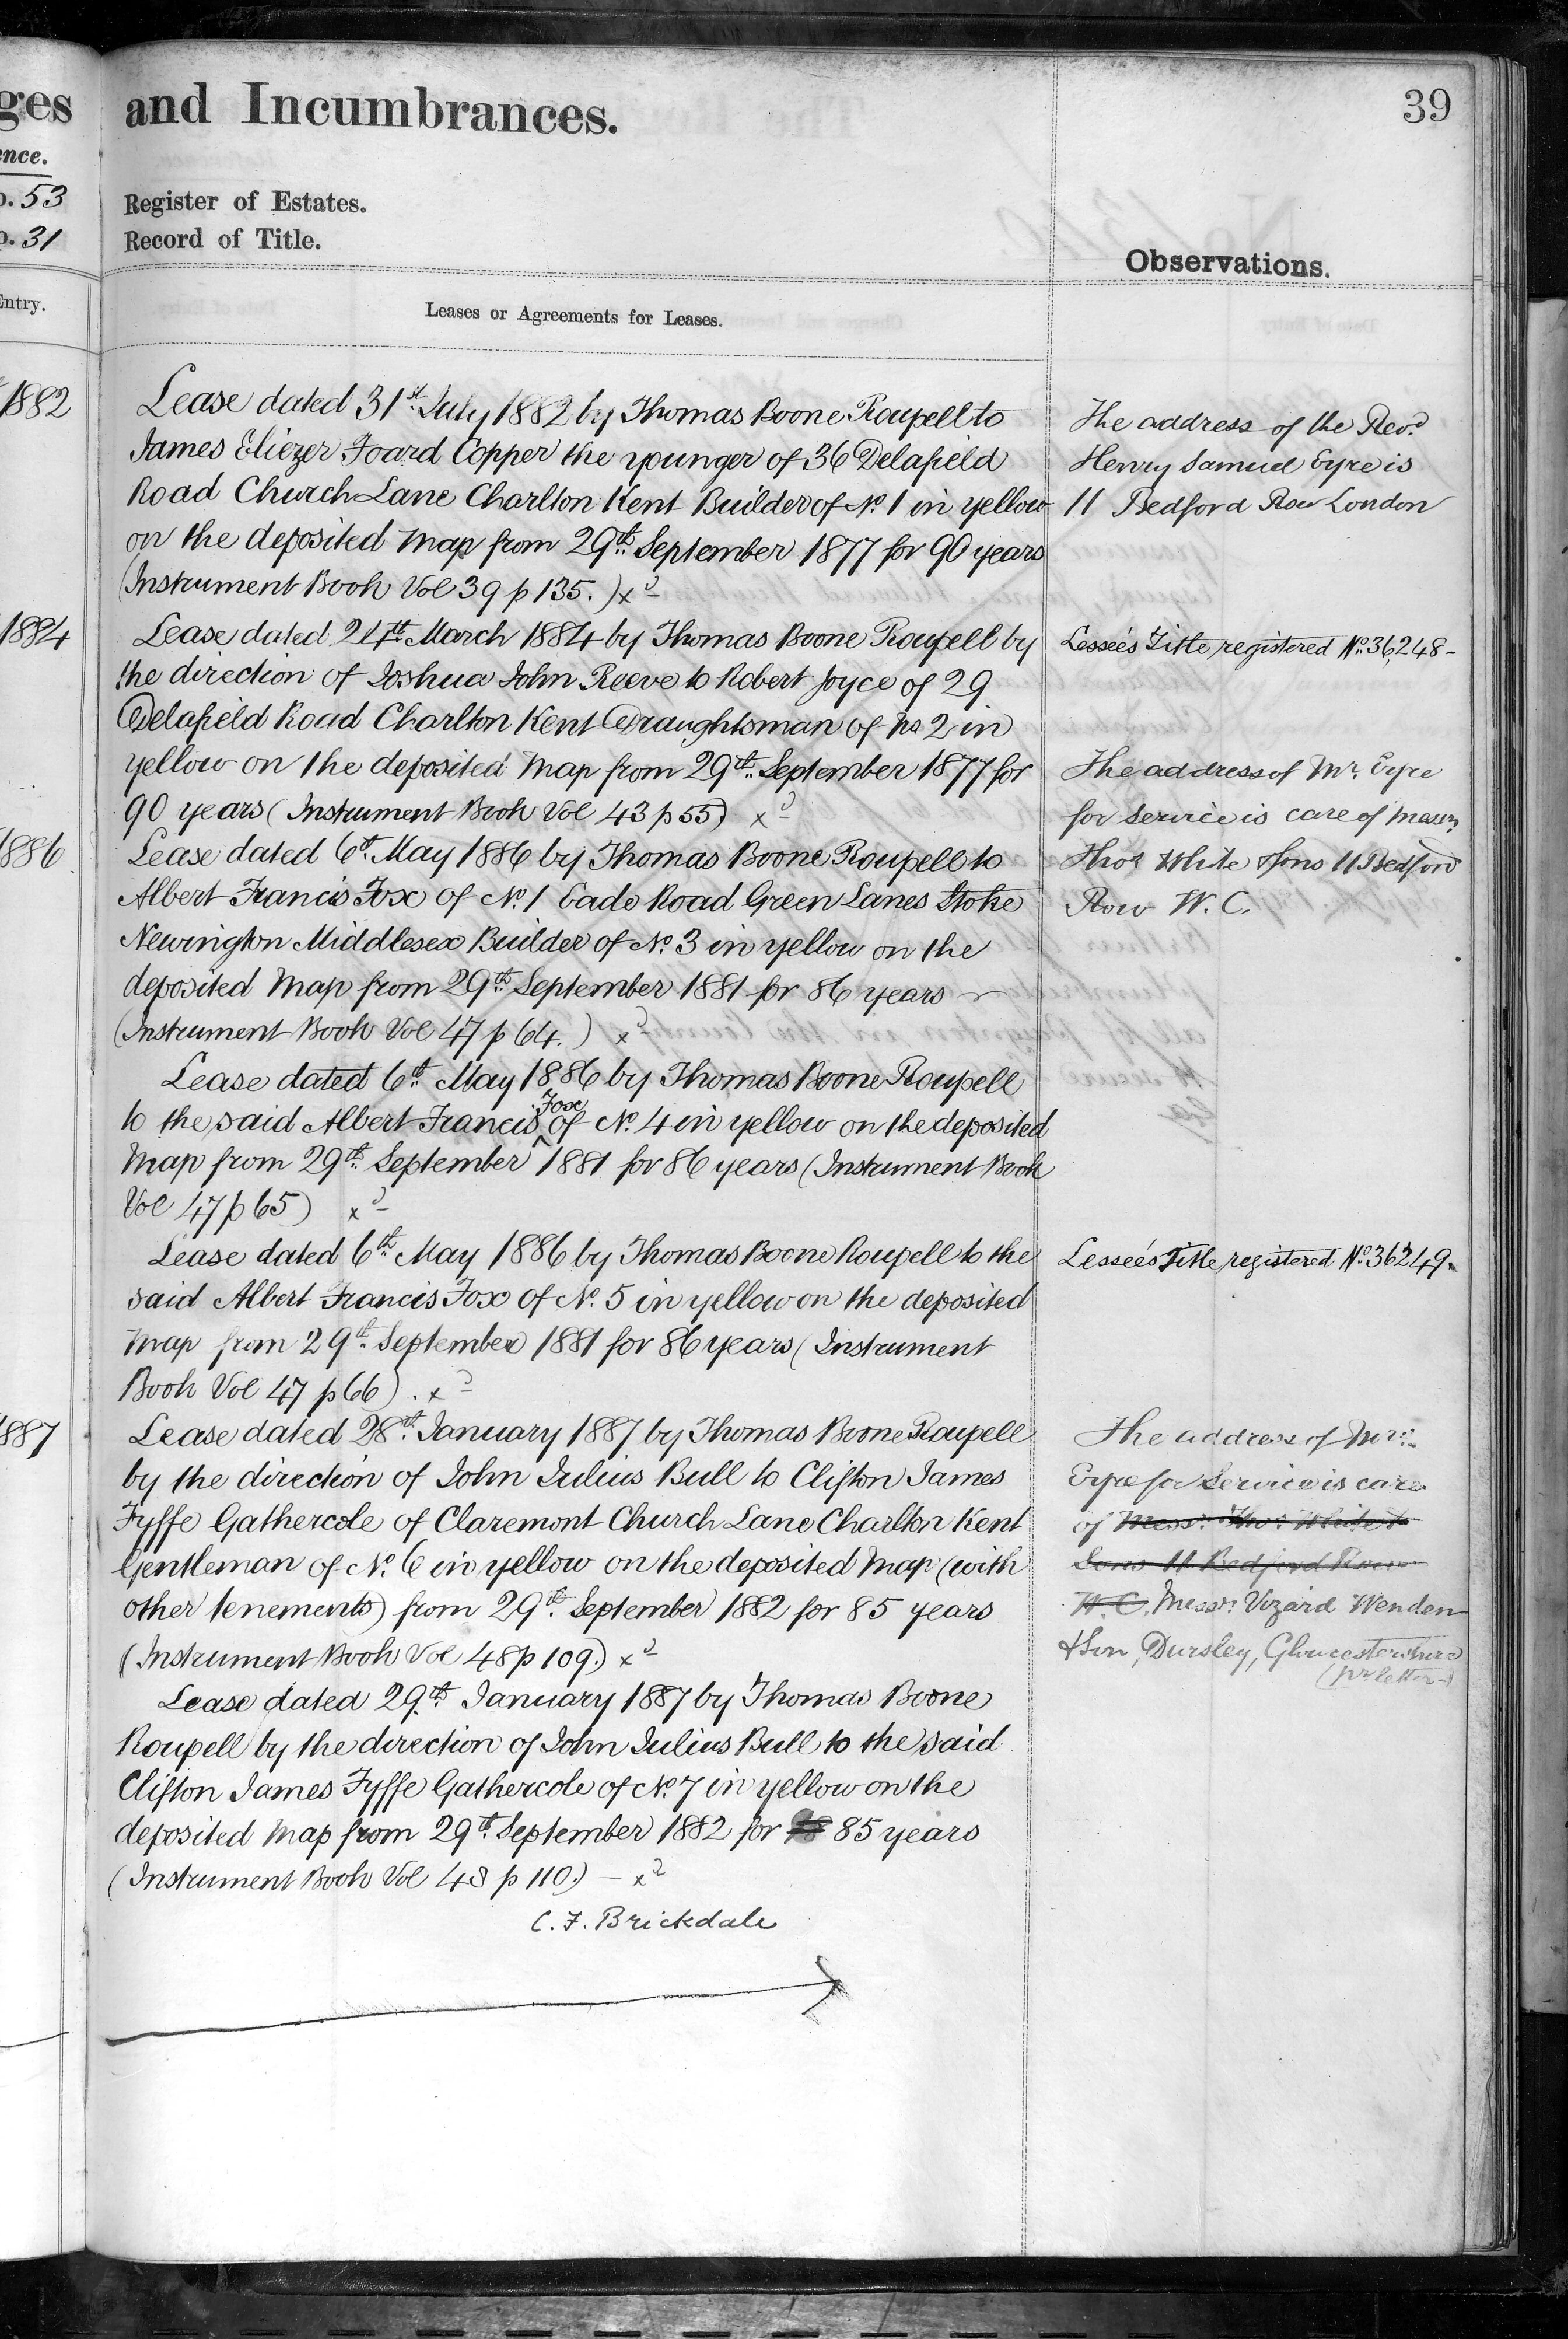 ges
and Incumbrances.
39
nce.
o. 53
Register of Estates.
p. 31
Record of Title.
Observations.
Entry.
Leases or Agreements for Leases.
1882
Lease dated 31st July 1882 by Thomas Boone Roupell to
James Eliezer Foard Copper the younger of 36 Delafield
Road Church Lane Charlton Kent Builder of No. 1 in yellow
on the deposited Map from 29th September 1877 for 90 years
(Instrument Book Vol 39 p 135.) x
The address of the Revd
Henry Samuel Eyre is
11 Bedford Row London
1884
Lease dated 24th March 1884 by Thomas Boone Roupell by
the direction of Joshua John Reeve to Robert Joyce of 29
Delafield Road Charlton Kent Draughtsman of No 2 in
yellow on the deposited Map from 29th September 1877 for
90 years (Instrument Book Vol 43 p 55) x
Lessee's Title registered No. 36,248-
The address of Mr. Eyre
for Service is care of Messrs
Thos White & Sons 11 Bedford
Row W.C.
1886
Lease dated 6th May 1886 by Thomas Boone Roupell to
Albert Francis Fox of No. 1 Eade Road Green Lanes Stoke
Newington Middlesex Builder of No. 3 in yellow on the
deposited Map from 29th September 1881 for 86 years
(Instrument Book Vol 47 p 64.) x
Lease dated 6th May 1886 by Thomas Boone Roupell
to the said Albert Francis Fox of No. 4 in yellow on the deposited
Map from 29th September 1881 for 86 years (Instrument Book
Vol 47 p 65) x
Lease dated 6th May 1886 by Thomas Boone Roupell to the
said Albert Francis Fox of No. 5 in yellow on the deposited
Map from 29th September 1881 for 86 years (Instrument
Book Vol 47 p 66). x
Lessee's Title registered No. 36249.
1887
Lease dated 28th January 1887 by Thomas Boone Roupell
by the direction of John Julius Bull to Clifton James
Fyffe Gathercole of Claremont Church Lane Charlton Kent
Gentleman of No. 6 in yellow on the deposited Map (with
other tenements) from 29th September 1882 for 85 years
(Instrument Book Vol 48 p 109.) x
The address of Mr.
Eyre for Service is care
of Messrs. Thos. White &
Sons 11 Bedford Row
W.C. Messrs Vizard Wenden
& Son, Dursley, Gloucestershire
(pr letter)
Lease dated 29th January 1887 by Thomas Boone
Roupell by the direction of John Julius Bull to the said
Clifton James Fyffe Gathercole of No. 7 in yellow on the
deposited Map from 29th September 1882 for 85 years
(Instrument Book Vol 48 p 110.) — x
C. F. Brickdale